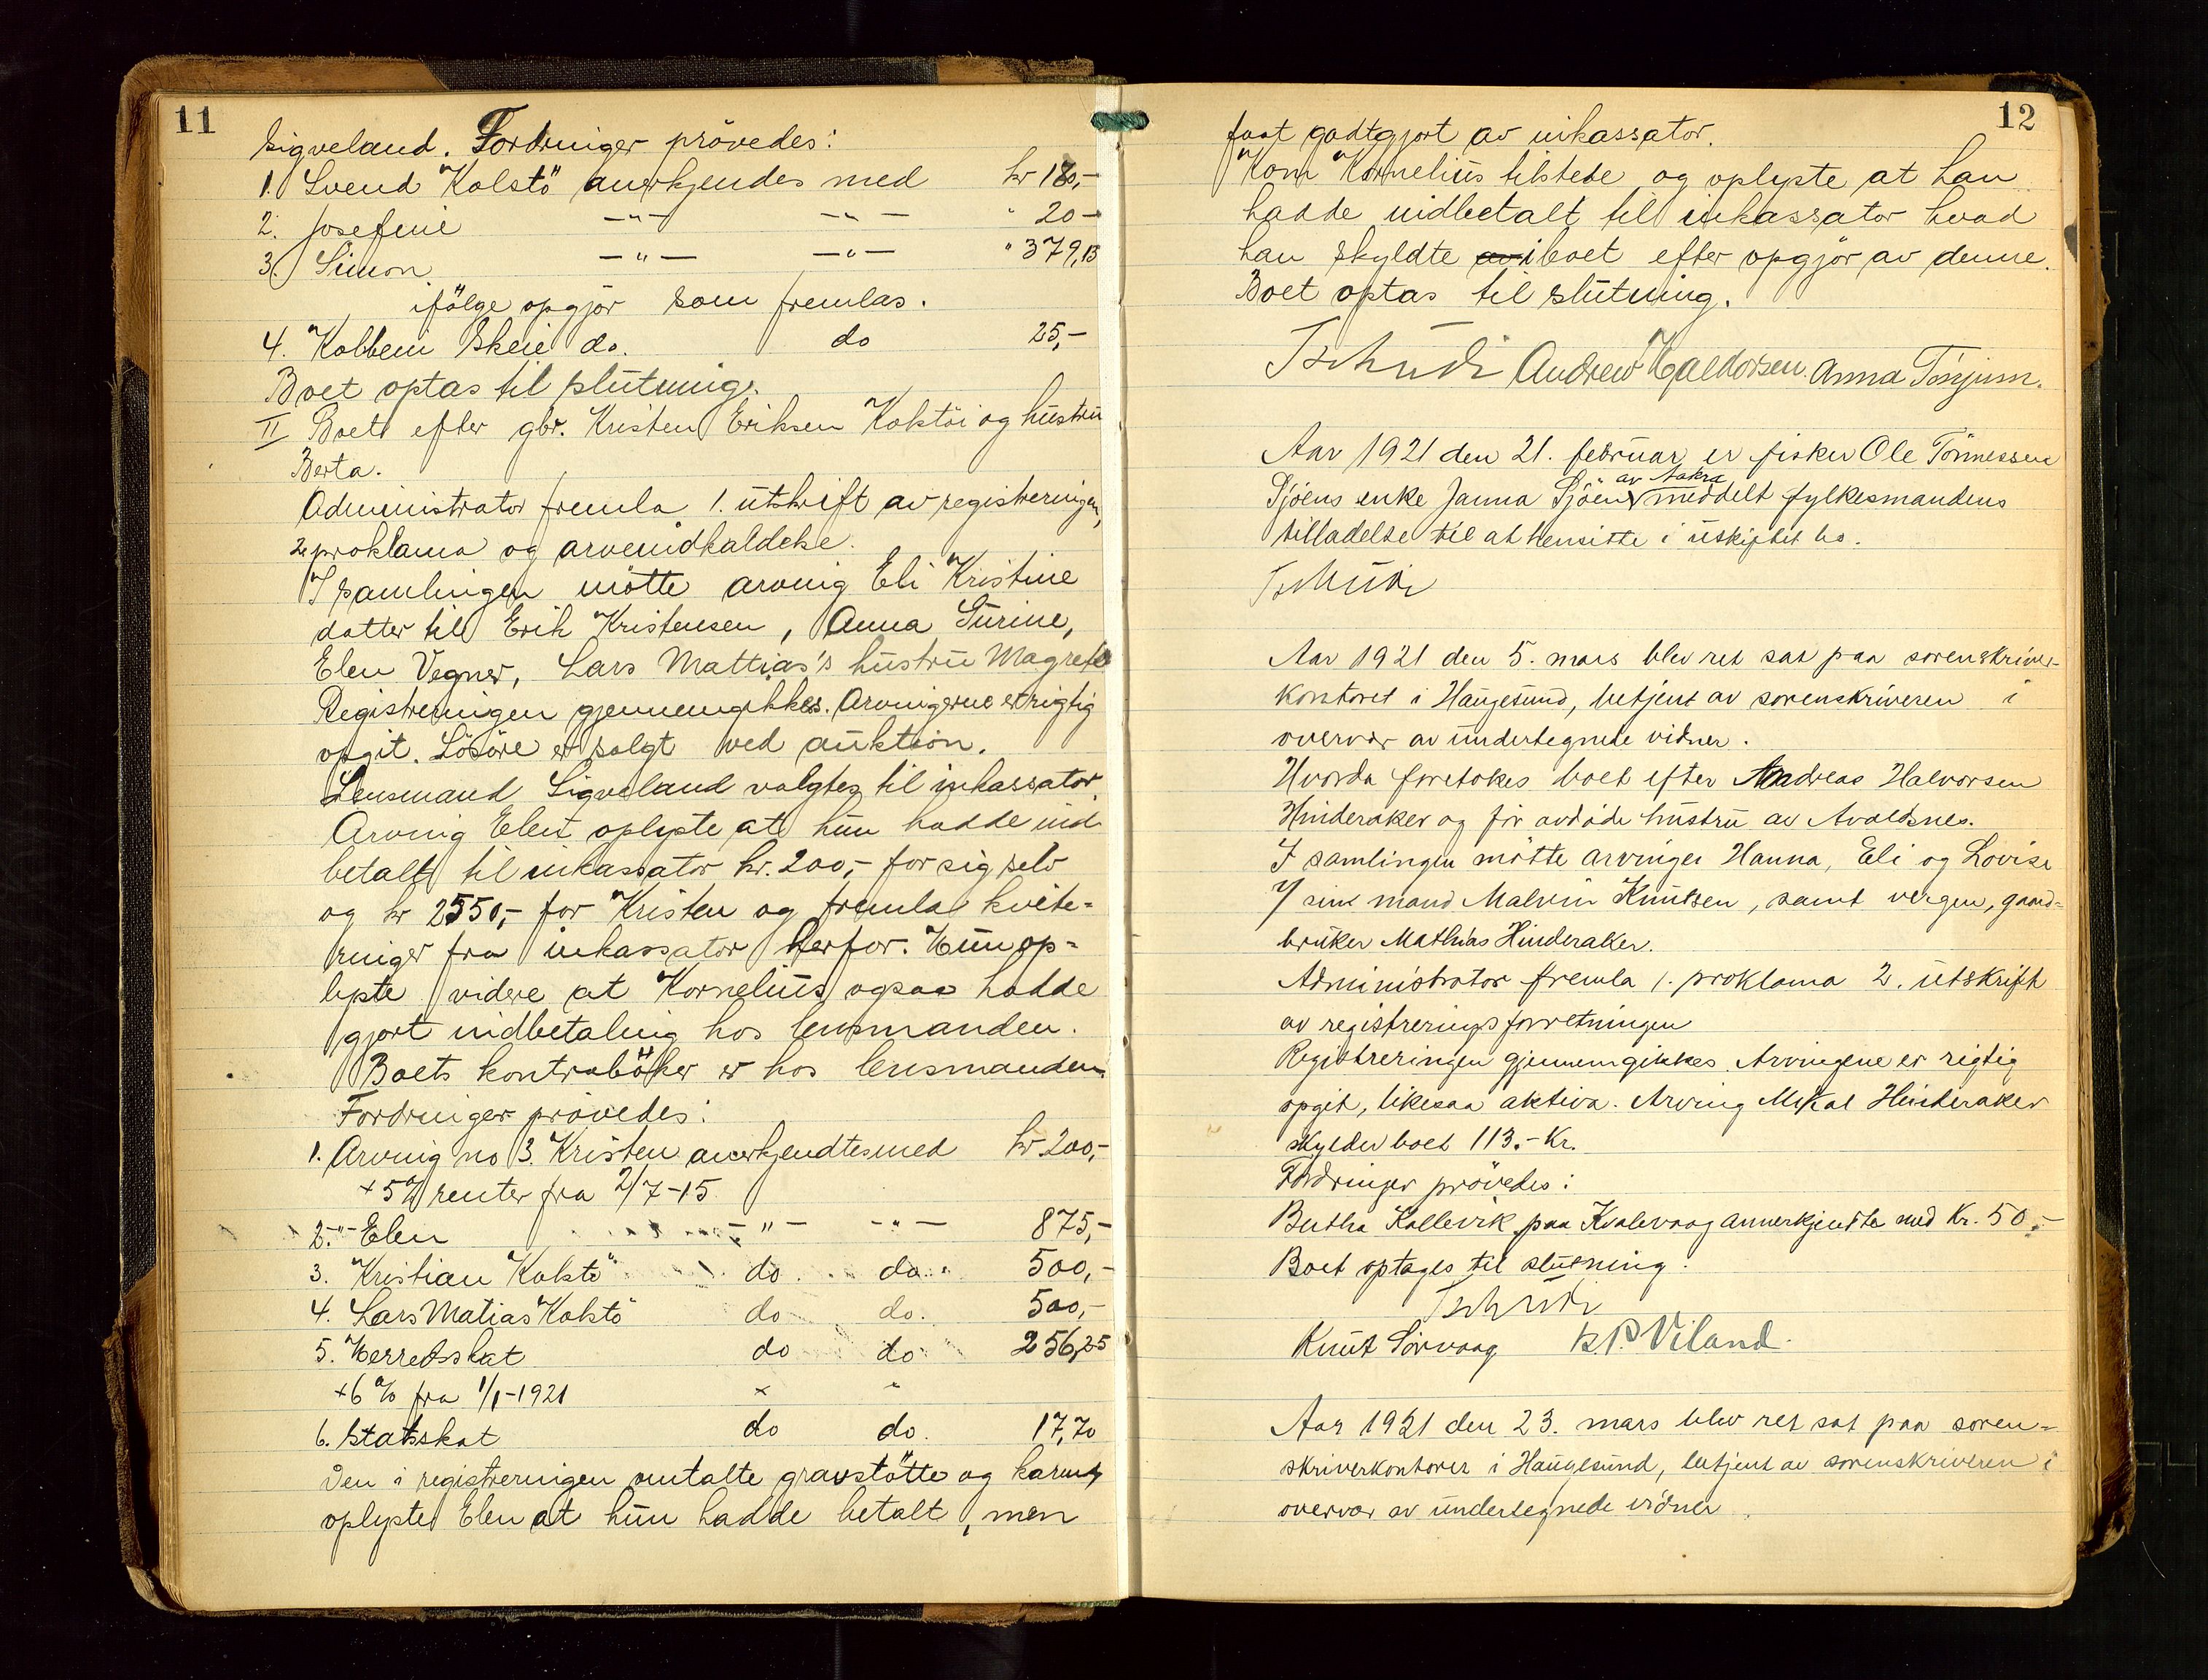 11
Sigveland. Fordringer prövedes:
1. Svend Kolstö anerkjendes med kr 180,-
2. Josefine -"- -"- " 20-
3. Simon -"- -"- " 379,13
ifölge opgjör som fremlas.
4. Kolbein Skeie do. do 25,-
Boet optas til slutning.
II Boet efter gbr. Kristen Eriksen Kolstöi og hustru
Berta.
Administrator fremla 1. utskrift av registreringen,
2. proklama og arveindkaldelse.
I samlingen mötte arving Eli Kristine
datter til Erik Kristensen, Anna Surine,
Elen Vegner, Lars Mattias's hustru Magrete
Registreringen gjennemgikkes. Arvingerne er rigtig
opgit. Lösöre er solgt ved auktion.
Lensmand Sigveland valgtes til inkassator.
Arving Elen oplyste at hun hadde ind
betalt til inkassator kr. 200,- for sig selv
og kr 2550,- for Kristen og fremla kvite-
ringer fra inkassator herfor. Hun op-
lyste videre at Kornelius ogsaa hadde
gjort indbetaling hos lensmanden.
Boets kontraböker er hos lensmanden.
Fordringer prövedes:
1. Arving no 3. Kristen anerkjendtes med kr 200,-
+ 5% renter fra 2/7-15
2. -"- Elen -"- -"- 875,-
3. Kristian Kolstö do do " 500,-
4. Lars Matias Kolstö do do. 500,-
5. Herredsskat do do 256,25
+ 6% fra 1/1-1921 " "
6. Statsskat do do. 17,70
Den i registreringen omtalte gravstötte og karm
oplyste Elen at hun hadde betalt, men
12
faat godtgjort av inkassator.
Kom Kornelius tilstede og oplyste at han
hadde indbetalt til inkassator hvad
han skyldte av i boet efter opgjör av denne.
Boet optas til slutning.
Tschudi Andrew Haldorsen. Anna Tönjum.
Aar 1921 den 21. februar er fisker Ole Tönnessen
av Aakra
Sjöens enke Janna Sjöen meddelt fylkesmandens
tilladelse til at hensitte i uskiftet bo.
Tschudi
Aar 1921 den 5. mars blev ret sat paa sorenskriver-
kontoret i Haugesund, betjent av sorenskriveren i
overvær av undertegnede vidner.
Hvorda foretokes boet efter Andreas Halvorsen
Hinderaker og før avdøde hustru av Avaldsnes.
I samlingen mötte arvinger Hanna, Eli og Lovise
v/ sin mand Malvin Knutsen, samt vergen, gaard-
bruker Mathias Hinderaker.
Administrator fremla 1. proklama 2. utskrift
av registreringsforretningen
Registreringen gjennemgikkes. Arvingene er rigtig
opgit, likesaa aktiva. Arving Mikal Hinderaker
skylder boet 113.- Kr.
Fordringer prövedes:
Bertha Kallevik paa Kvalevaag annerkjendtes med Kr. 50.-
Boet optages til slutning.
Tschudi
Knut Sörvaag K.P. Viland.
Aar 1921 den 23. mars blev ret sat paa soren-
skriverkontoret i Haugesund, betjent av sorenskriveren i
overvær av undertegnede vidner